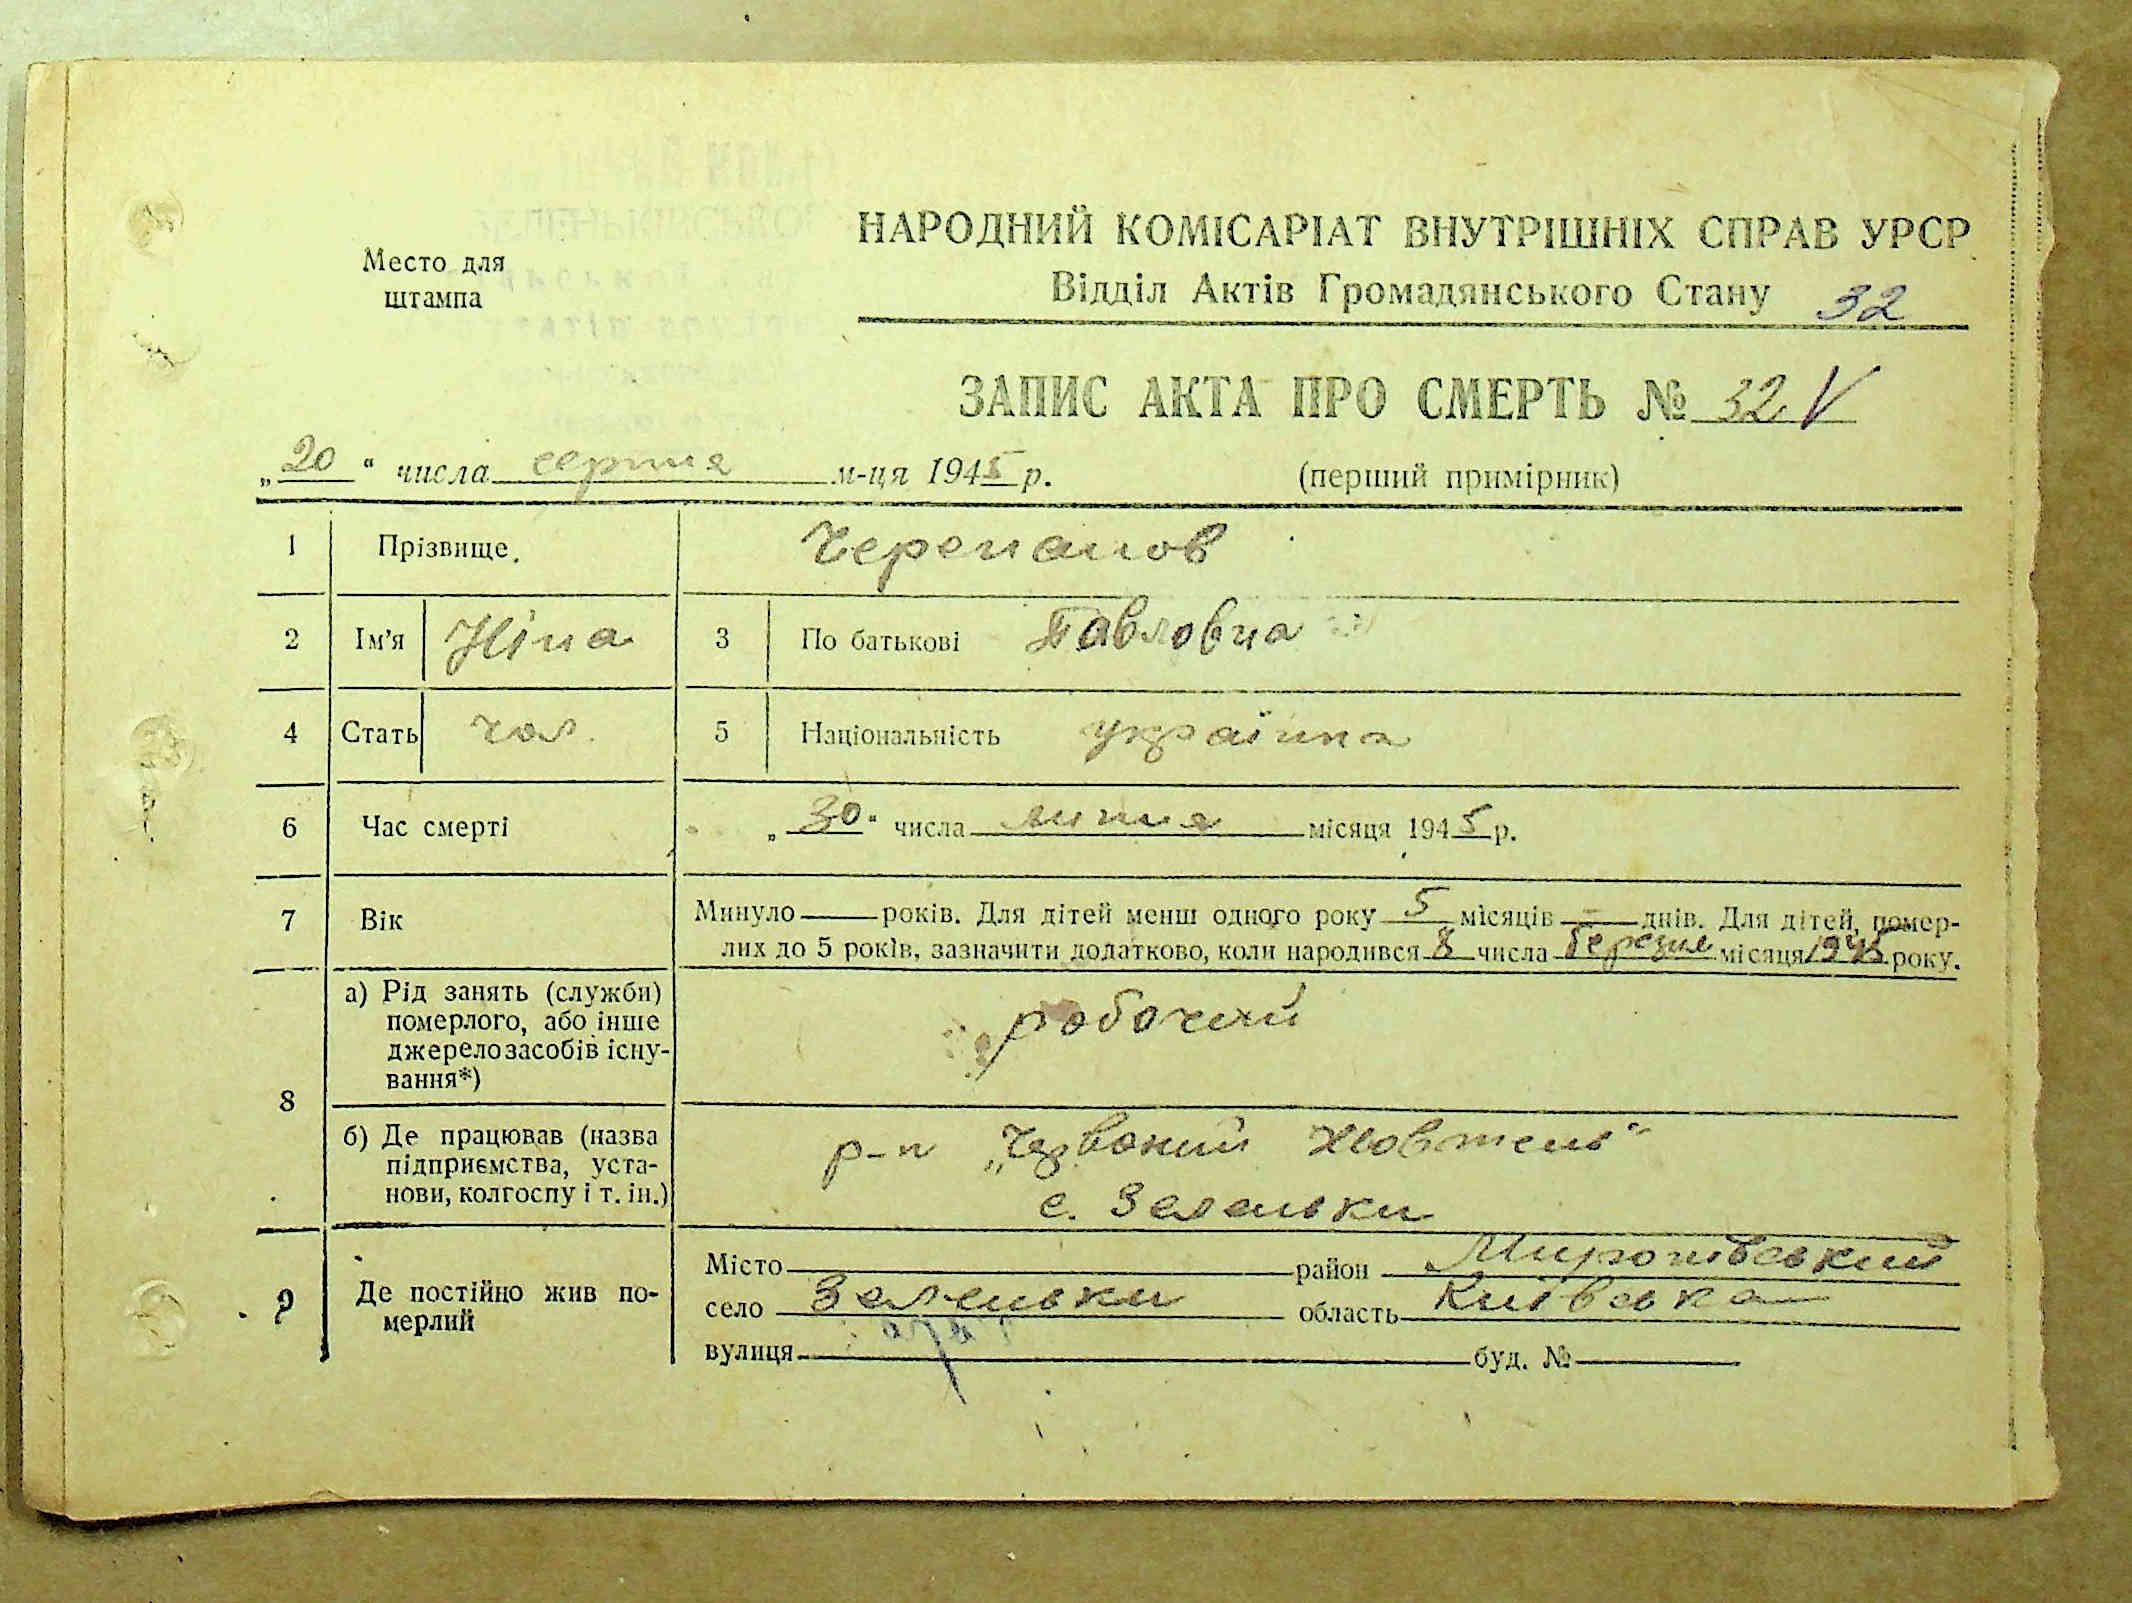 Место для
штампа
НАРОДНИЙ КОМІСАРІАТ ВНУТРІШНІХ СПРАВ УРСР
Відділ Актів Громадянського Стану 32
ЗАПИС АКТА ПРО СМЕРТЬ № 32 V
„20“ числа серпня м-ця 1945 р. (перший примірник)
1 Прізвище. Черепанов
2 Ім’я Ніна 3 По батькові Павловна
4 Стать чол. 5 Національність українка
6 Час смерті „30“ числа липня місяця 1945 р.
7 Вік Минуло — років. Для дітей менш одного року 5 місяців — днів. Для дітей, помер-
лих до 5 років, зазначити додатково, коли народився 8 числа березня місяця 1945 року.
8 а) Рід занять (служби)
померлого, або інше
джерело засобів існу-
вання*)
робочий
б) Де працював (назва
підприємства, уста-
нови, колгоспу і т. ін.)
р-п „Червоний Жовтень“
с. Зеленьки
9 Де постійно жив по-
мерлий
Місто район Миронівський
село Зеленьки область Київська
вулиця буд. №